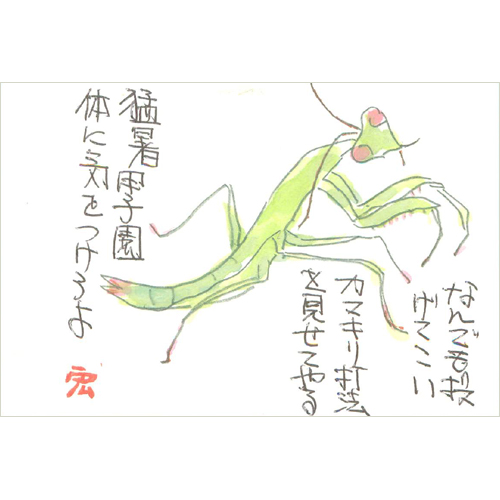 なんでも投
げてこい
カマキリ打法
を見せてやる
猛暑甲子園
体に気をつけろよ
宏